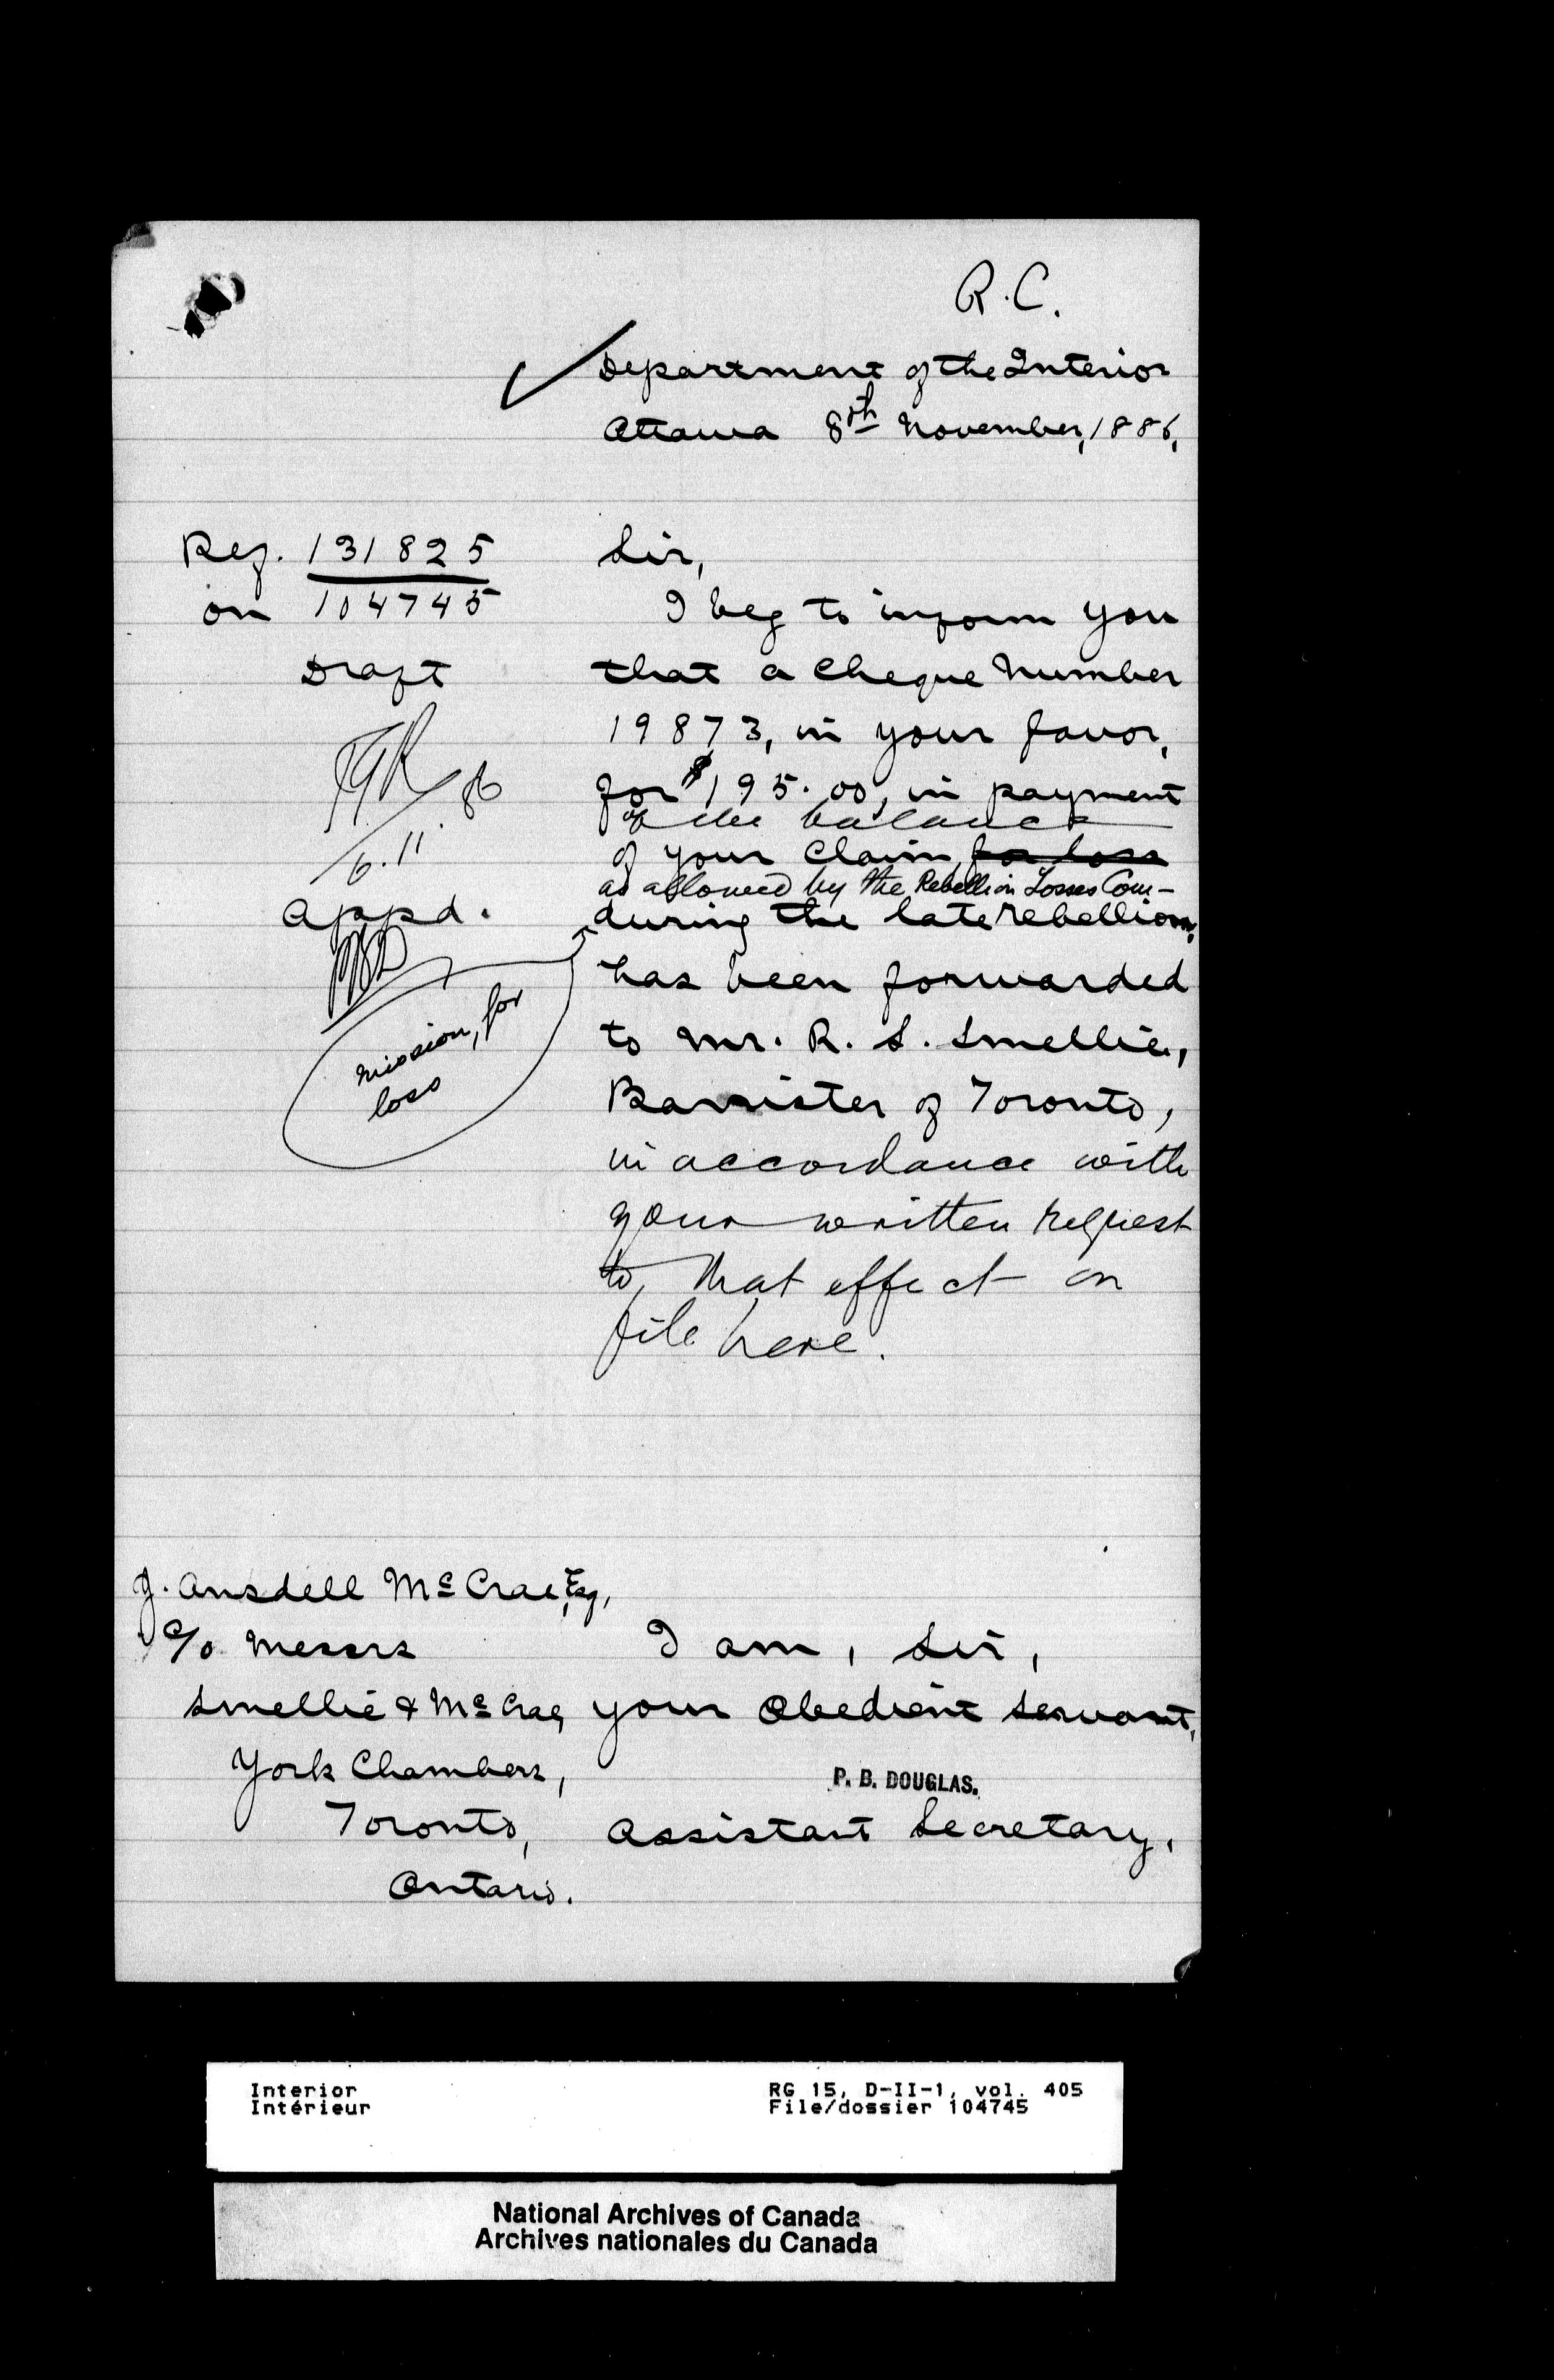 R.C.
Department of the Interior
Ottawa 8th November, 1886,
Ref. 131825
on 104745
Draft
86
6.11.
Appd.
Sir,
I beg to inform you
that a Cheque Number
19873, in your favor,
for $195.00, in payment
of the balance
of your Claim, for loss
as allowed by the Rebellion Losses Com-
mission, for
loss
during the late rebellion,
has been forwarded
to Mr. R. S. Smellie,
Barrister of Toronto,
in accordance with
your written request
to that effect on
file here.
J. Ansdell McCrae, Esq,
c/o Messrs
Smellie & McCrae,
York Chambers,
Toronto,
Ontario.
I am, Sir,
Your Obedient Servant,
P. B. DOUGLAS.
Assistant Secretary.
Interior
Intérieur
RG 15, D-II-1, vol. 405
File/dossier 104745
National Archives of Canada
Archives nationales du Canada